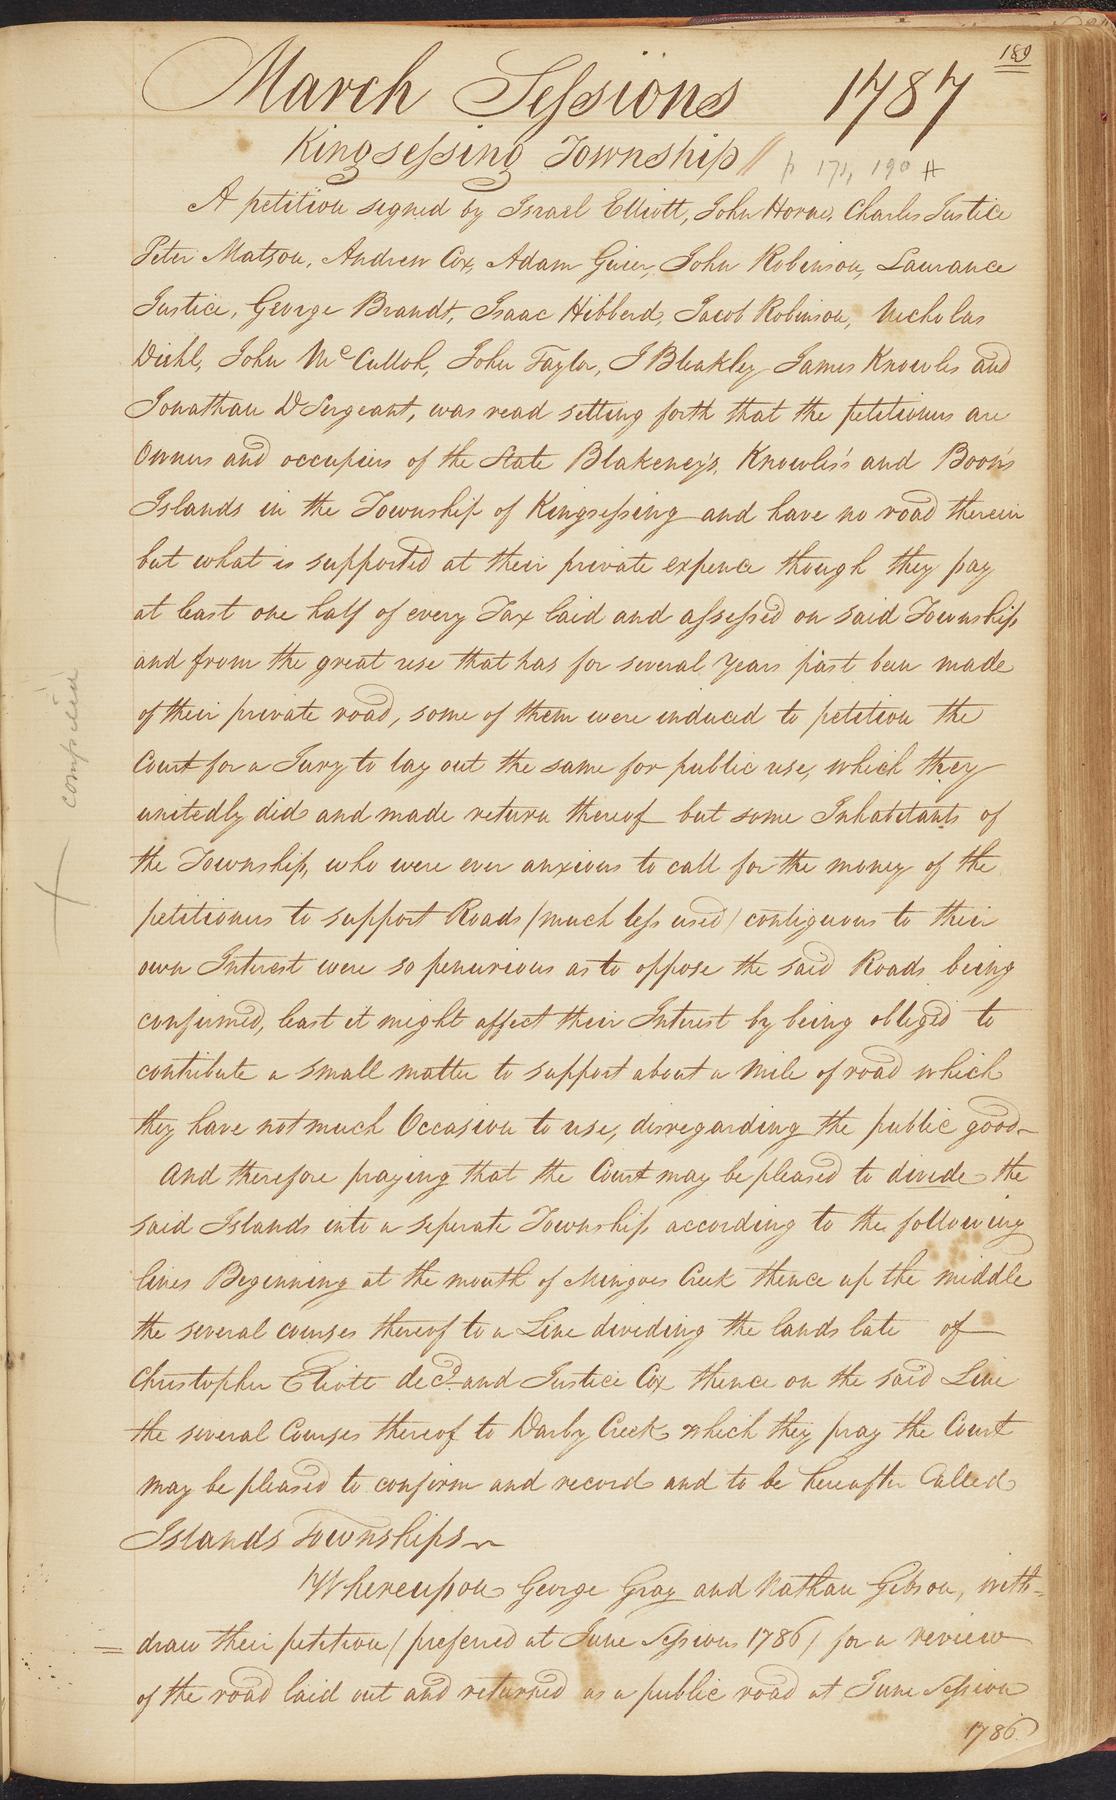 189
March Sessions 1787
Kingsessing Township // p 171, 190
A petition signed by Israel Elliott, John Horne, Charles Justice
Peter Matson, Andrew Cox, Adam Guier, John Robinson, Laurance
Justice, George Brandt, Isaac Hibberd, Jacob Robinson, Nicholas
Diehl, John McCulloh, John Taylor, J Bleakley James Knowles and
Jonathan D Sergeant, was read setting forth that the petitioners are
Owners and occupiers of the State Blakeney's, Knowles's and Boon's
Islands in the Township of Kingsessing and have no road therein
but what is supported at their private expence though they pay
at least one half of every Tax laid and assessed on said Township
and from the great use that has for several Years past been made
of their private road, some of them were induced to petition the
Court for a Jury to lay out the same for public use, which they
unitedly did and made return thereof but some Inhabitants of
the Township, who were ever anxious to call for the money of the
petitioners to support Roads (much less used) contiguous to their
own Interest were so penurious as to oppose the said Roads being
confirmed, least it might affect their Interest by being obliged to
contribute a small matter to support about a Mile of road which
they have not much Occasion to use, disregarding the public good
And therefore praying that the Court may be pleased to divide the
said Islands into a seperate Township according to the following
lines Beginning at the mouth of Mingoes Creek thence up the middle
the several courses thereof to a Line dividing the lands late of
Christopher Eliott decd. and Justice Cox thence on the said Line
the several Courses thereof to Darby Creek which they pray the Court
may be pleased to confirm and record and to be hereafter Called
Islands Townships
Whereupon George Gray and Nathan Gibson, with=
=draw their petition (preferred at June Sessions 1786) for a review
of the road laid out and returned as a public road at June Session
1786